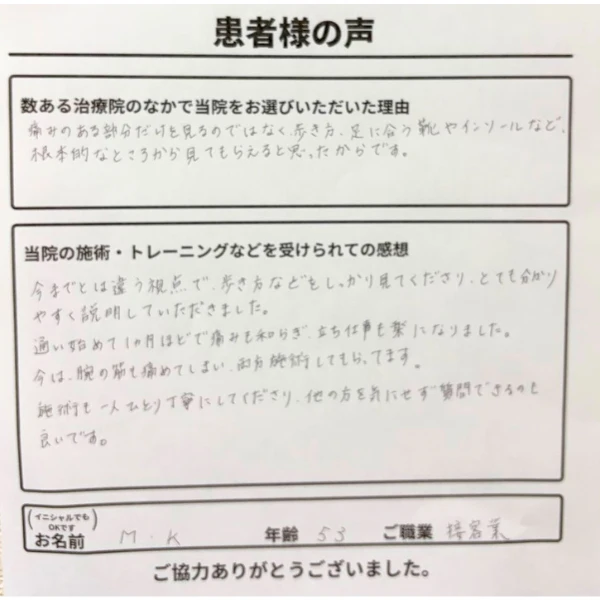 患者様の声
数ある治療院のなかで当院をお選びいただいた理由
痛みのある部分だけを見るのではなく、歩き方、足に合う靴やインソールなど、
根本的なところから見てもらえると思ったからです。
当院の施術・トレーニングなどを受けられての感想
今までとは違う視点で、歩き方などをしっかり見てくださり、とても分かり
やすく説明していただきました。
通い始めて1ヵ月ほどで痛みも和らぎ、立ち仕事も楽になりました。
今は、腕の筋も痛めてしまい、両方施術してもらってます。
施術も一人ひとり丁寧にしてくださり、他の方を気にせず質問できるのも
良いです。
(イニシャルでも
OKです)
お名前 M.K 年齢 53 ご職業 接客業
ご協力ありがとうございました。